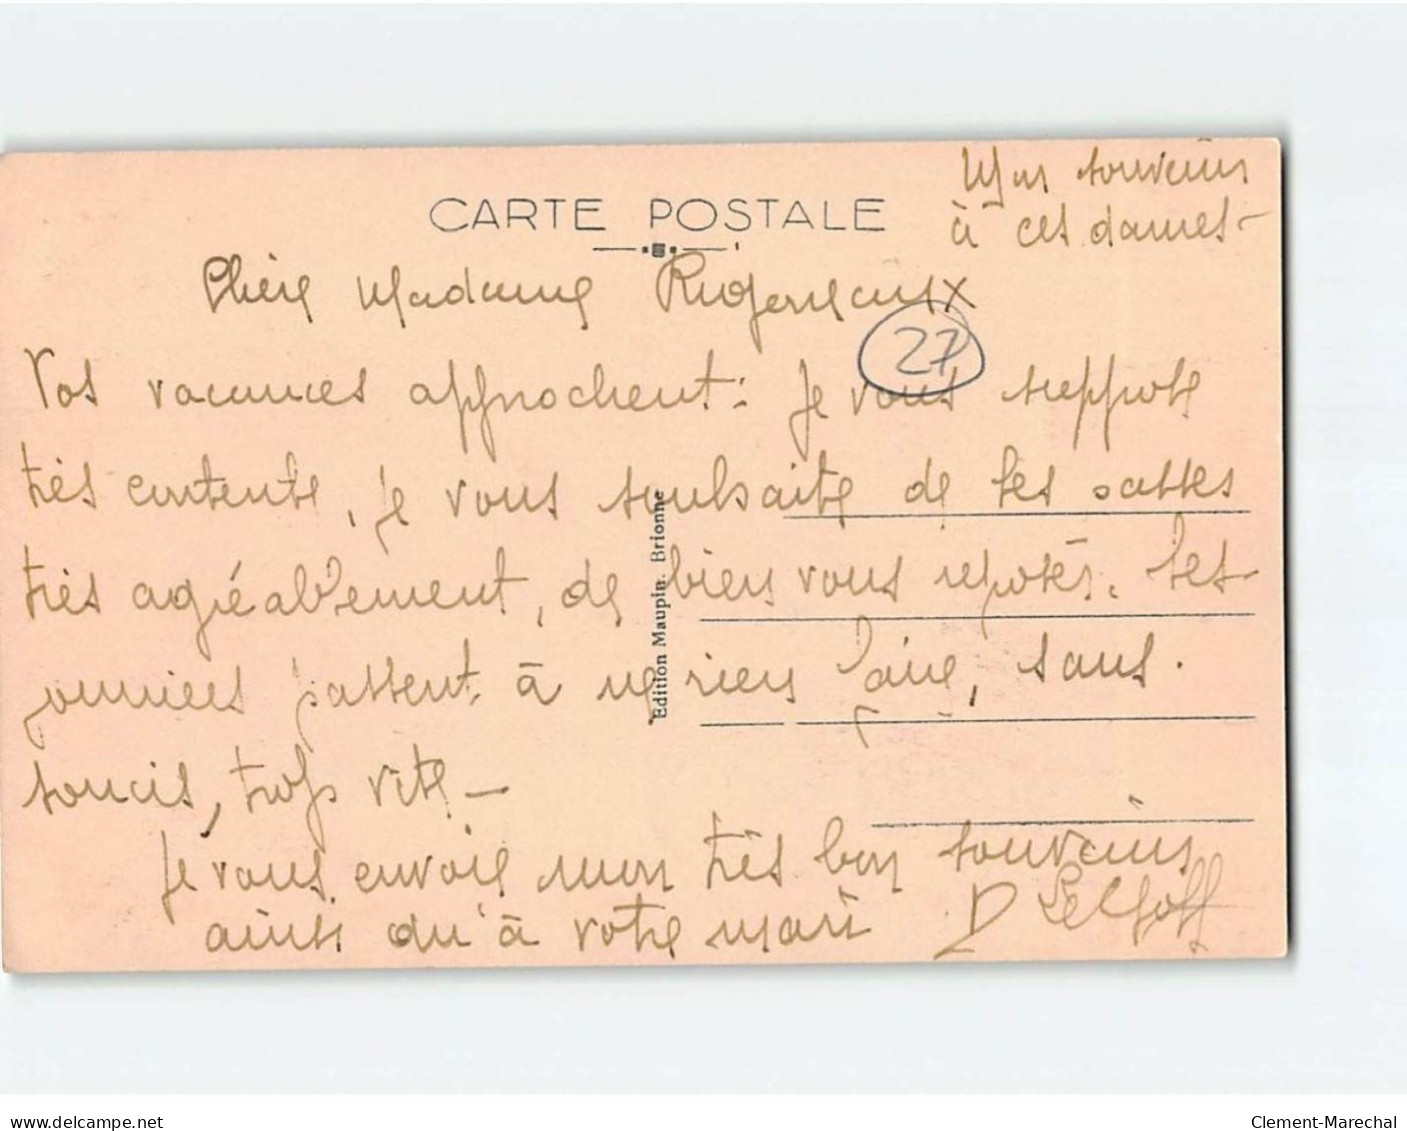 Mes souvenirs
à ces dames -
CARTE POSTALE
Chère Madame
27
Vos vacances approchent : je vous suppose
très contente, je vous souhaite de les passer
très agréablement, de bien vous reposer. Les
journées passent à ne rien faire, sans
soucis, trop vite -
Je vous envoie mon très bon souvenir
ainsi qu'à votre mari
Le Goff
Edition Maupin. Brionne
delcampe.net
Clement-Marechal